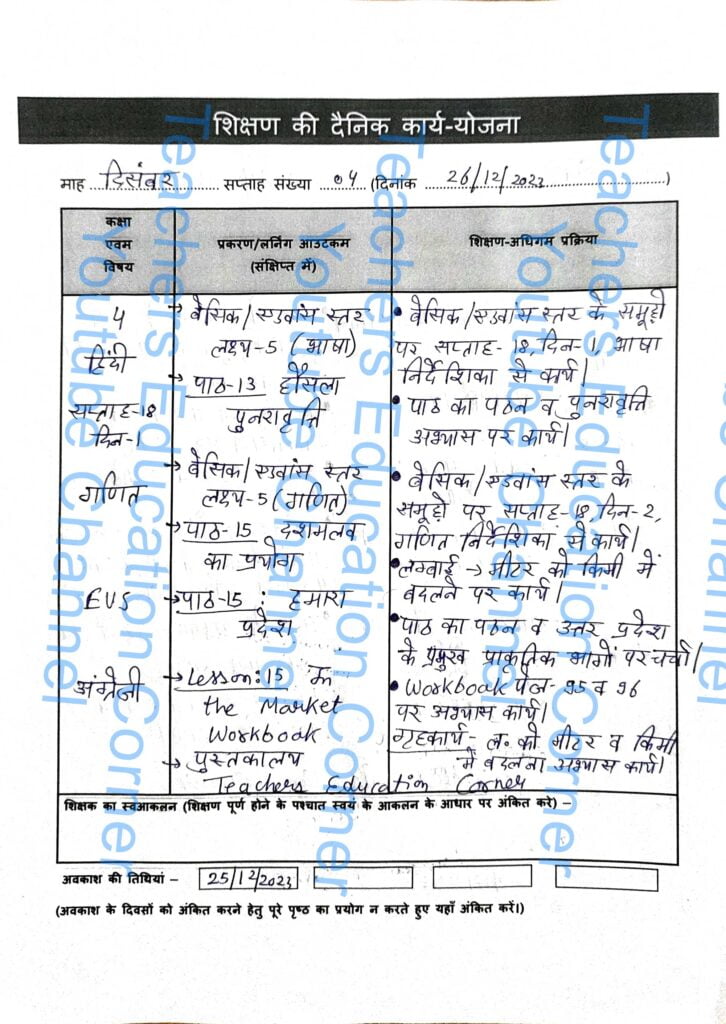 शिक्षण की दैनिक कार्य-योजना
माह दिसंबर सप्ताह संख्या 04 (दिनांक 26/12/2023)
कक्षा
एवम
विषय
प्रकरण/लर्निंग आउटकम
(संक्षिप्त में)
शिक्षण-अधिगम प्रक्रिया
4
हिंदी
सप्ताह-18
दिन-1
→ बेसिक/एडवांस स्तर
लक्ष्य-5 (भाषा)
→ पाठ-13 हौसला
पुनरावृत्ति
• बेसिक/एडवांस स्तर के समूहों
पर सप्ताह-18, दिन-1, भाषा
निर्देशिका से कार्य।
• पाठ का पठन व पुनरावृत्ति
अभ्यास पर कार्य।
गणित
→ बेसिक/एडवांस स्तर
लक्ष्य-5 (गणित)
→ पाठ-15 दशमलव
का प्रयोग
• बेसिक/एडवांस स्तर के
समूहों पर सप्ताह-18, दिन-2,
गणित निर्देशिका से कार्य।
• लम्बाई → मीटर को किमी में
बदलने पर कार्य।
EVS
→ पाठ-15 : हमारा
प्रदेश
• पाठ का पठन व उत्तर प्रदेश
के प्रमुख प्राकृतिक भागों पर चर्चा।
अंग्रेजी
→ Lesson:15 In
the Market
Workbook
→ पुस्तकालय
• Workbook पेज-95 व 96
पर अभ्यास कार्य।
गृहकार्य- ल० को मीटर व किमी
में बदलना अभ्यास कार्य।
Teachers Education Corner
शिक्षक का स्वआकलन (शिक्षण पूर्ण होने के पश्चात स्वयं के आकलन के आधार पर अंकित करे) –
अवकाश की तिथियां – 25/12/2023
(अवकाश के दिवसों को अंकित करने हेतु पूरे पृष्ठ का प्रयोग न करते हुए यहाँ अंकित करें।)
Teachers Education Corner
Youtube Channel
Teachers Education Corner
Youtube Channel
Teachers Education Corner
Youtube Channel